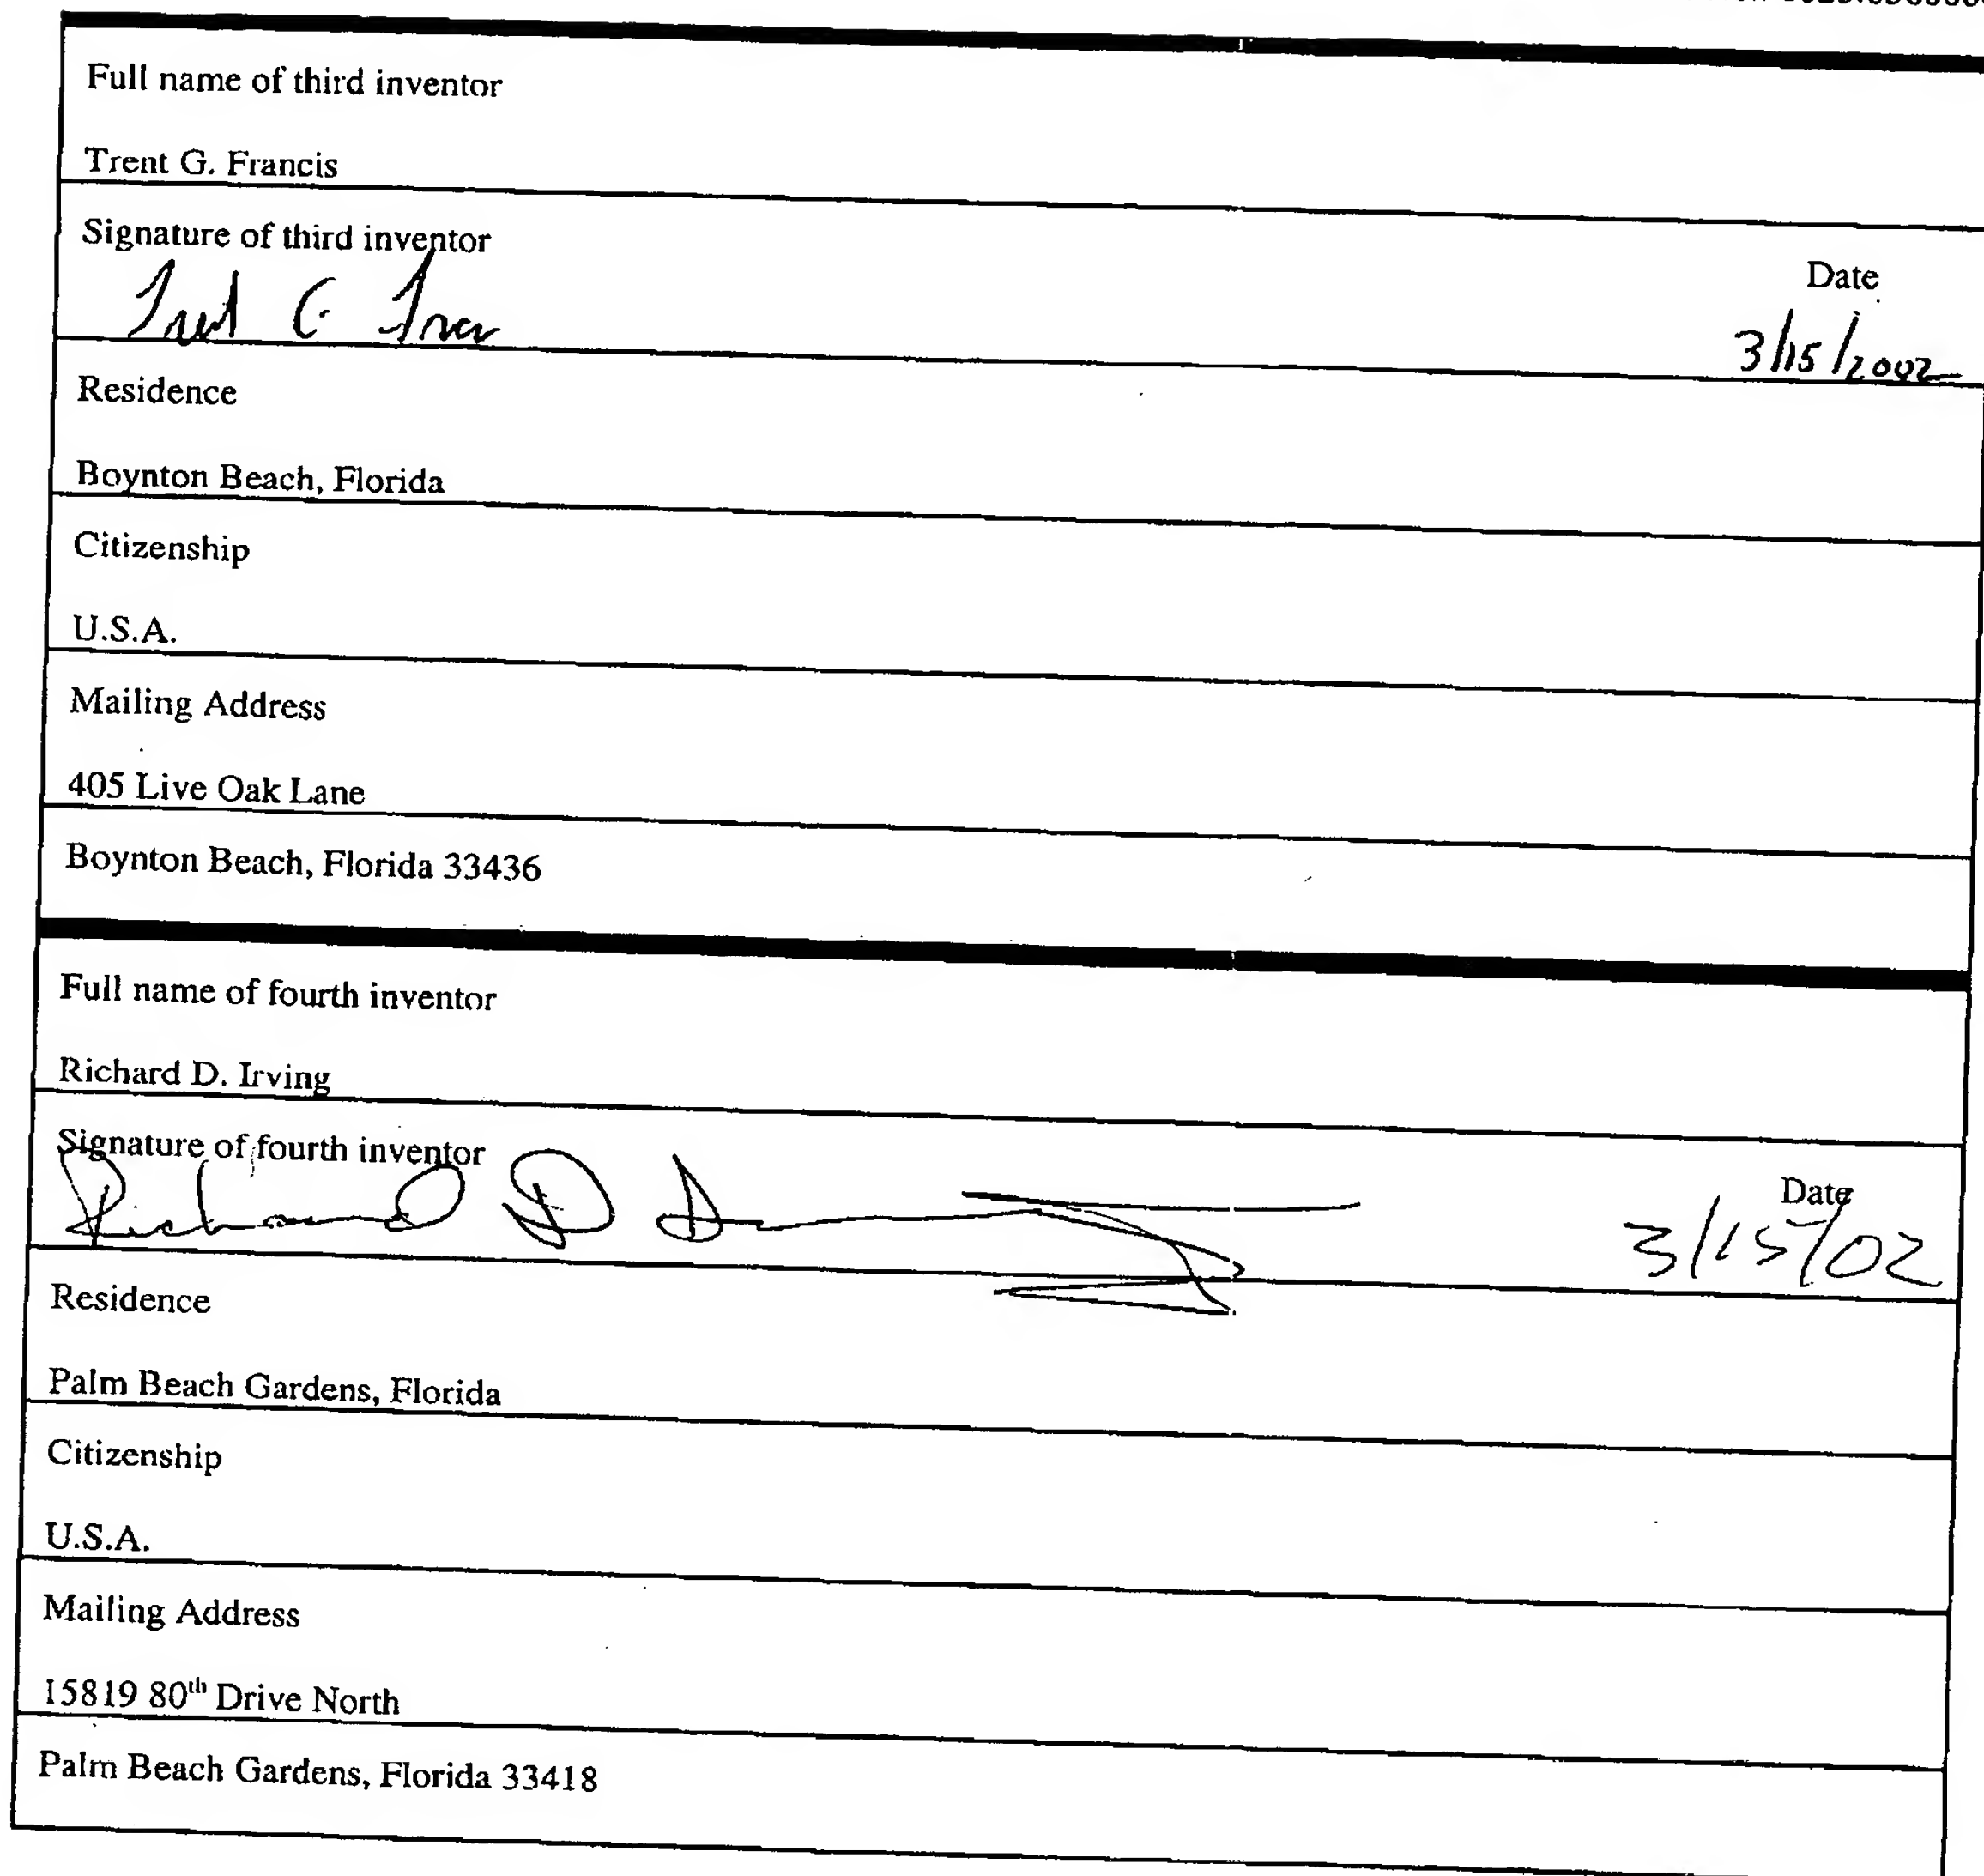 Full name of third inventor
Trent G. Francis
Signature of third inventor
Date
3/15/2002
Residence
Boynton Beach, Florida
Citizenship
U.S.A.
Mailing Address
405 Live Oak Lane
Boynton Beach, Florida 33436
Full name of fourth inventor
Richard D. Irving
Signature of fourth inventor
Date
Richard D
3/15/02
Residence
Palm Beach Gardens, Florida
Citizenship
U.S.A.
Mailing Address
15819 80th Drive North
Palm Beach Gardens, Florida 33418